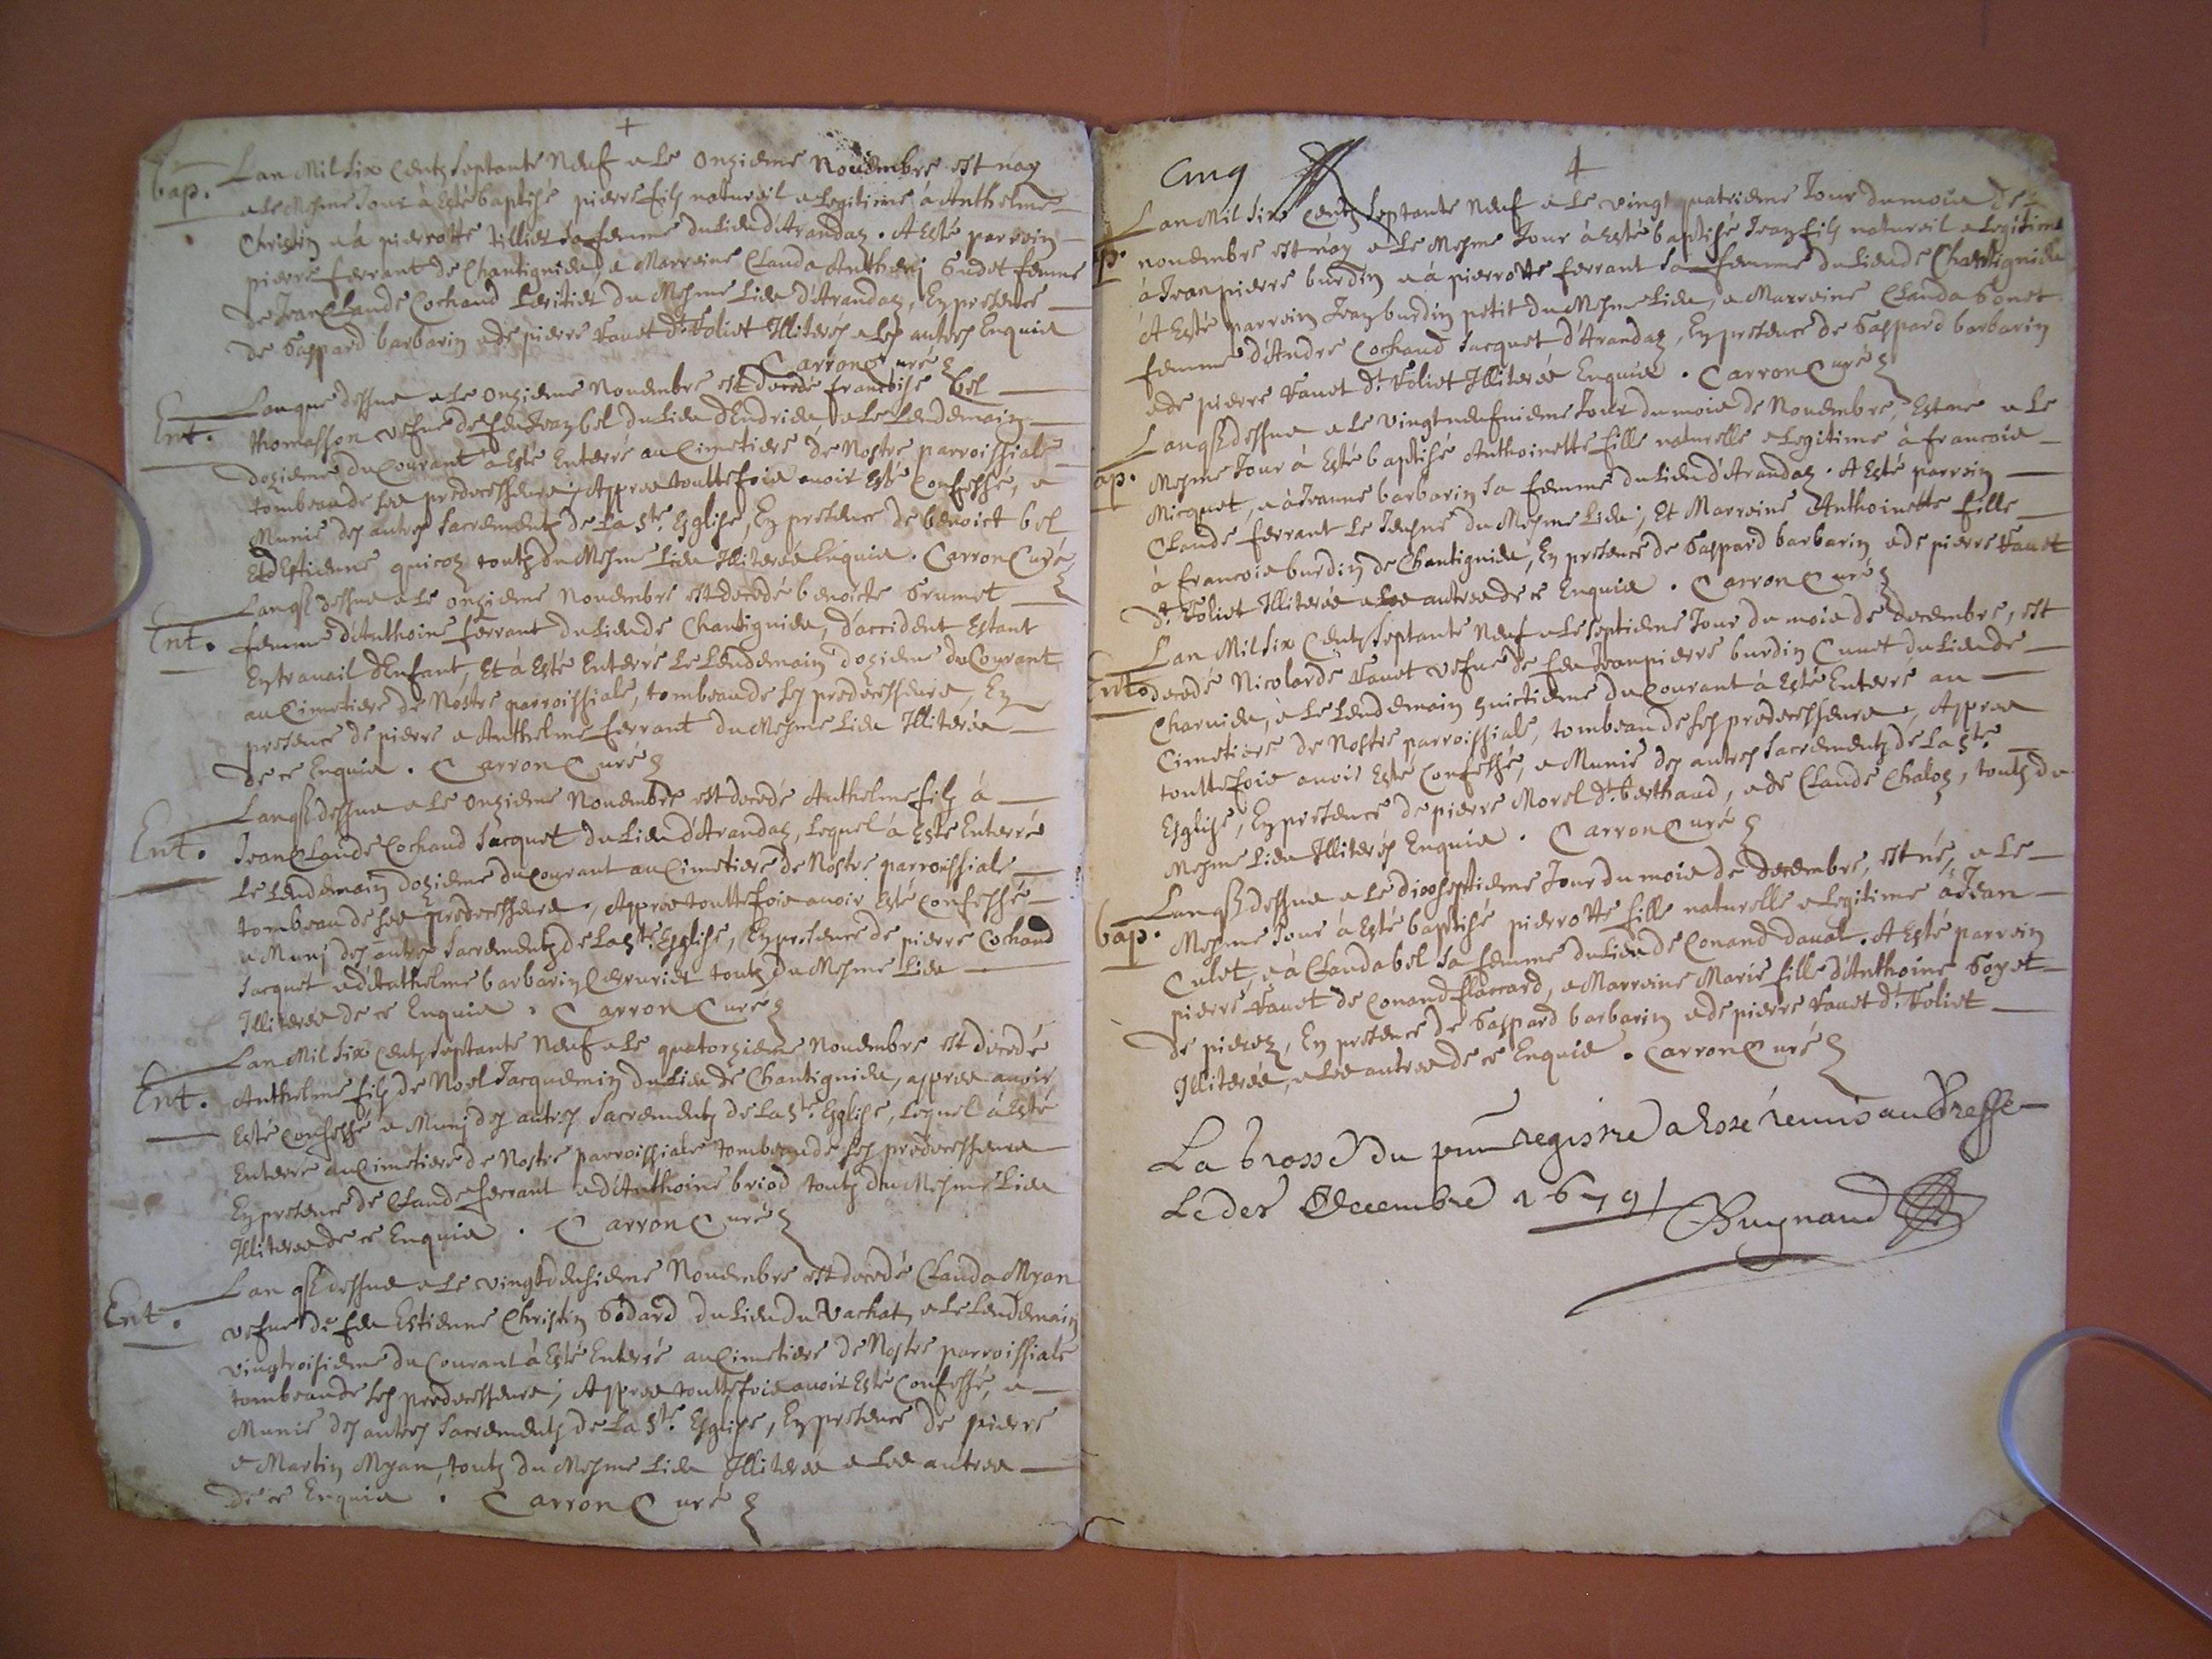 +
bap. Lan Mil six centz septante neuf & le onzieme Novembre est nay
& le mesme jour à esté baptisé pierre filz naturel & legitime à Anthelme
Christin & à pierrotte tillier sa femme du lieu d'Arandaz. A esté parrein
pierre ferrant de Chantignieu, & Marreine Clauda Anthenj Gudet femme
de Jean Claude Cochaud heritier du Mesme lieu d'Arandaz, En presence
de Gaspard barbarin & de pierre vauet dt Foliet Illiterés & les autres Enquis
Carron Curé
Ent. Lan que dessus & le onzieme Novembre est decedé francoise bel
thomasson vefue de feu Jean bel du lieu d'Endrieu, & le lendemain
dozieme du Courant à esté Enterré au Cimetiere de Nostre parroissiale
tombeau de ses predecesseurs, Appres touttefois auoir esté Confessé, &
Munie des autres sacrementz de la ste. Esglise, En presence de benoict bel
Et d'Estienne quicoz toutz du Mesme lieu Illiterés Enquis. Carron Curé
Ent. Lan q dessus & le onzieme Novembre est decedé benoicte Grumet
femme d'Anthoine ferrant du lieu de Chantignieu, d'accident Estant
En trauail d'Enfant, Et à esté Enterré le lendemain dozieme du Courant
au Cimetiere de Nostre parroissiale, tombeau de ses predecesseurs, En
presence de pierre & Anthelme ferrant du Mesme lieu Illiterés
de ce Enquis. Carron Curé
Ent. Lan q dessus & le onzieme Novembre est decedé Anthelme filz à
Jean Claude Cochaud Jacquet du lieu d'Arandaz, lequel à esté Enterré
le lendemain dozieme du Courant au Cimetiere de Nostre parroissiale
tombeau de ses predecesseurs, Appres touttefois auoir esté Confessé
& Munj des autres sacrementz de la ste. Esglise, En presence de pierre Cochaud
Jacquet & d'Anthelme barbarin toutz du Mesme lieu
Illiterés de ce Enquis. Carron Curé
Ent. Lan Mil six centz septante neuf & le quatorzieme Novembre est decedé
Anthelme filz de Noel Jacquemin du lieu de Chantignieu, appres auoir
esté Confessé & Munj des autres sacrementz de la ste. Esglise, lequel à esté
Enterré au Cimetiere de Nostre parroissiale tombeau de ses predecesseurs
En presence de Claude ferrant & d'Anthoine briod toutz du Mesme lieu
Illiterés de ce Enquis. Carron Curé
Ent. Lan q dessus & le vingtdeusieme Novembre est decedé Clauda Myan
vefue de feu Estienne Christin Godard du lieu du Vachat, & le lendemain
vingtroisieme du Courant à esté Enterré au Cimetiere de Nostre parroissiale
tombeau de ses predecesseurs; Appres touttefois auoir esté Confessé, &
Munie des autres sacrementz de la ste. Esglise, En presence de pierre
& Martin Myan, toutz du Mesme lieu Illiterés & les autres
de ce Enquis. Carron Curé
Cinq
4
Lan Mil six centz septante neuf & le vingt quatrieme Jour du mois de
p. novembre est nay & le Mesme Jour à esté baptisé Jean filz naturel & legitime
à Jean pierre burdin & à pierrotte ferrant sa femme du lieu de Chantignieu
A esté parrein Jean burdin petit du Mesme lieu, & Marreine Clauda Gonet
femme d'Andre Cochaud Jacquet d'Arandaz, En presence de Gaspard barbarin
& de pierre vauet dt Foliet Illiterés Enquis. Carron Curé
Lan q dessus & le vingtneufuieme Jour du mois de Novembre, Est né & le
ap. Mesme Jour à esté baptisé Anthoinette fille naturelle & legitime à francois
Micquet, & à Jeanne barbarin sa femme du lieu d'Arandaz. A esté parrein
Claude ferrant le Jeusne du Mesme lieu; Et Marreine Anthoinette fille
à francois burdin de Chantignieu, En presence de Gaspard barbarin & de pierre vauet
dt. Foliet Illiterés & les autres de ce Enquis. Carron Curé
Lan Mil six centz septante neuf & le septieme Jour du mois de decembre, est
Ent. decedé Nicolarde vauet vefue de feu Jean pierre burdin Cunet du lieu de
Charuieu, & le lendemain huictieme du Courant à esté Enterré au
Cimetiere de Nostre parroissiale, tombeau de ses predecesseurs, Appres
touttefois auoir esté Confessé, & Munie des autres sacrementz de la ste.
Esglise, En presence de pierre Morel dt. berthaud, & de Claude Chaloz, toutz du
Mesme lieu Illiterés Enquis. Carron Curé
Lan q dessus & le dixseptieme Jour du mois de decembre, est né, & le
bap. Mesme Jour à esté baptisé pierrotte fille naturelle & legitime à Jean
Culet, & à Clauda bel sa femme du lieu de Conand daual. A esté parrein
pierre vauet de Conand flaccard, & Marreine Marie fille d'Anthoine Goyet
de pierez, En presence de Gaspard barbarin & de pierre vauet dt. Foliet
Illiterés, & les autres de ce Enquis. Carron Curé
La brosse du pnt registre a este remis au Greffe
Le der Decembre 1679 / Buynand